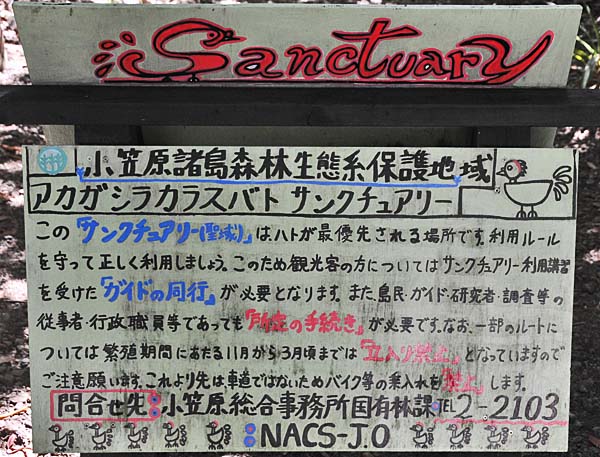 Sanctuary
小笠原諸島森林生態系保護地域
アカガシラカラスバト サンクチュアリー
この「サンクチュアリー(聖域)」はハトが最優先される場所です。利用ルール
を守って正しく利用しましょう。このため観光客の方についてはサンクチュアリー利用講習
を受けた「ガイドの同行」が必要となります。また、島民・ガイド・研究者・調査等の
従事者・行政職員等であっても「所定の手続き」が必要です。なお、一部のルートに
ついては繁殖期間にあたる11月から3月頃までは「立入り禁止」となっていますので
ご注意願います。これより先は車道ではないためバイク等の乗入れを禁止します。
問合せ先:小笠原総合事務所国有林課 TEL2-2103
NACS-J.O